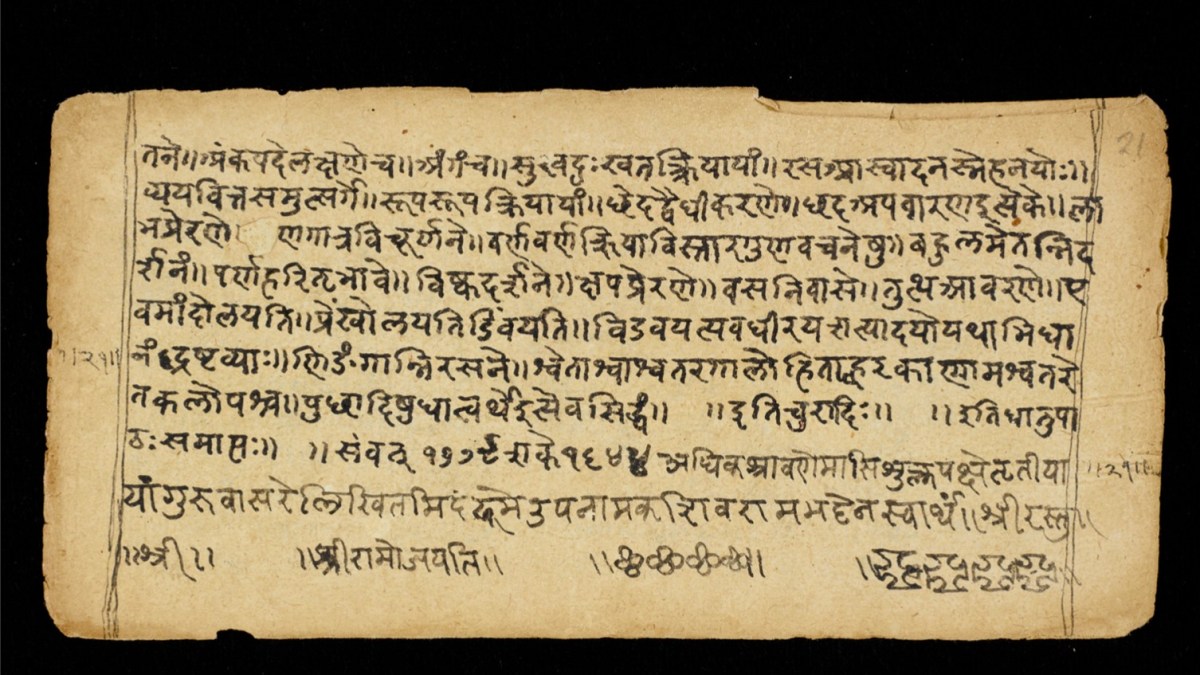 तने॥अंकपदेलक्षणेच॥अंगंच॥सुखदुःखतत्क्रियायां॥रसआस्वादनस्नेहनयोः॥ 21
व्ययवित्तसमुत्सर्गे॥रूपरूपक्रियायां॥छेदद्वैधीकरणे॥छदअपवारणइत्येके॥ला
भप्रेरणे॥ णगात्रविचूर्णने॥वर्णवर्णक्रियाविस्तारगुणवचनेषु॥बहुलमेतन्निद
र्शनं॥पर्णहरितभावे॥विष्कदर्शने॥क्षपप्रेरणे॥वसनिवासे॥तुत्थआवरणे॥ए
वमांदोलयति॥प्रेंखोलयतिडिंवयति॥विडवयत्यवधीरयत्यादयोयथाभिधा
॥२१॥ नंद्रष्टव्याः॥णिङंगान्निरसने॥श्वेताश्वाश्वतरगालोडिताह्वरकाणामश्वतरे
तकलोपश्च॥पुछादिषुधात्वर्थेइत्येवसिद्धं॥ ॥इतिचुरादिः॥ ॥इतिधातुपा
ठःसमाप्तः॥ ॥संवत् १७७९शके१६४४ अधिकश्रावणेमासिशुक्लपक्षेतृतीया ॥२१॥
यांगुरुवासरेलिखितमिदं उपनामक स्वार्थं॥श्रीरस्तु॥
॥श्री॥ ॥श्रीरामोजयति॥